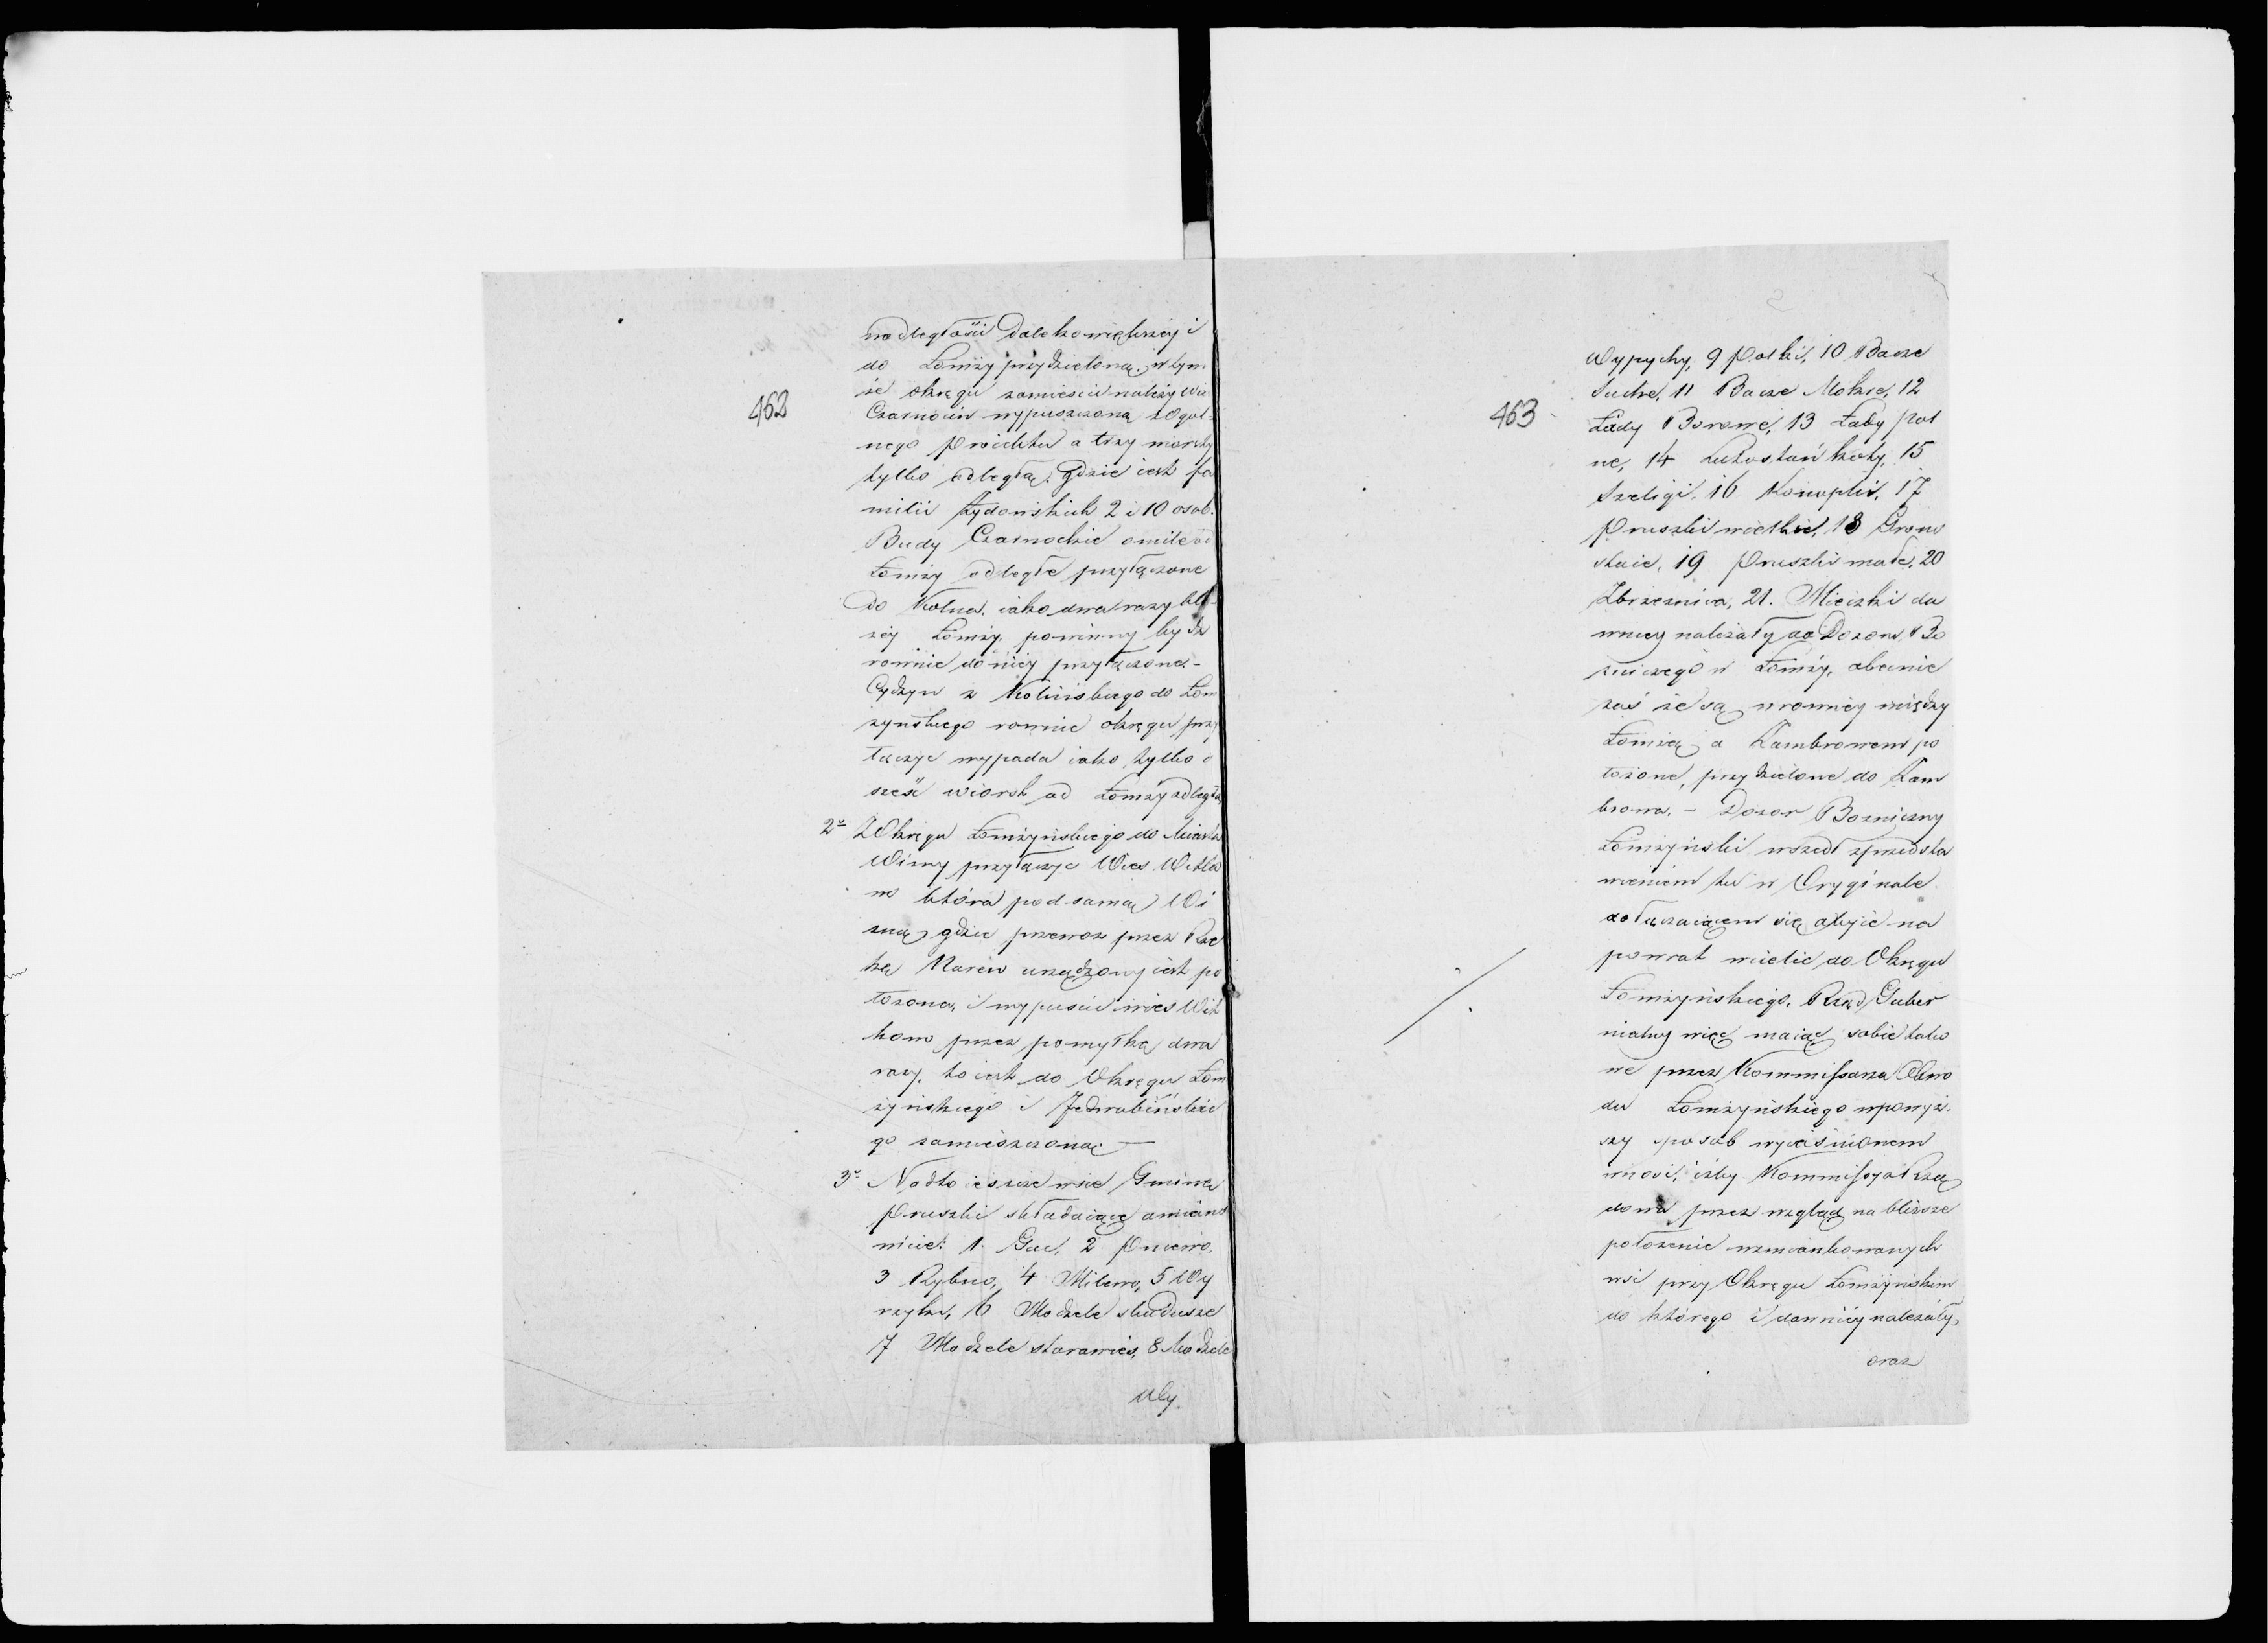 462
w odległości daleko większej i
do Łomży przydzieloną. w tym
że okręgu zamieścić należy Wieś
Czarnocin wypuszczoną z ogól-
nego projektu a trzy wiorsty
tylko odległą, gdzie iest fa
milii żydowskich 2 i 10 osob.
Budy Czarnockie o milę od
Łomży odległe przyłączone
do Kolna, iako dwa razy bli-
żéy Łomży, powinny bydź
rownie do niéy przyłączone -
Cydzyn z Kolińskiego do Łom
żyńskiego rownie okręgu przy
łączyć wypada iako tylko o
sześć wiorst od Łomży odległą
2° Z Okręgu Łomżyńskiego do Miasta
Wizny przyłączyć Wieś Witko
wo która pod samą Wi
zną, gdzie przewoz przez Rze
kę Narew urządzony iest po
łożona, i wypuścić wieś Wit
kowo przez pomyłkę dwa
razy, to iest do Okręgu Łom
żyńskiego i Jedwabińskie
go zamieszczoną —
3° Nadto ieszcze wsie Gminę
Pruszki składaiące a miano
wicie: 1. Gać, 2 Pniewo,
3 Rybno, 4 Milewo, 5 Wy
rzyki, 6 Modzele skudosze
7 Modzele starawieś, 8 Modzele
Wy
463
Wypychy, 9 Polki, 10 Bacze
Suche, 11 Bacze Mokre, 12
Łady Borowe, 13 Łady pol
ne, 14 Kułostań koty, 15
Szeligi, 16 Konopki, 17
Pruszki wielkie, 18 Grono
staie, 19 Pruszki małe, 20
Zbrzeznica, 21. Mieczki da
wniey należały do Dozoru Bo
zniczego w Łomży, obecnie
zaś że są w rowniey między
Łomżą a Zambrowem po
łożone, przydzielone do Zam
browa. - Dozor Bozniczny
Łomżyński wszedł z przedsta
wieniem tu w Oryginale
dołączaiącem się abyie na
powrat wcielić do Okręgu
Łomżyńskiego, Rząd Guber
nialny więc maiąc sobie tako
we przez Kommissarza Obwo
du Łomżyńskiego w powyż-
szy sposób wyiaśnionem
wnosi, iżby Kommissya Rzą
dowa przez wzgląd na bliższe
położenie wzmiankowanych
wsi przy Okręgu Łomżyńskim
do którego i dawniéy należały,
oraz